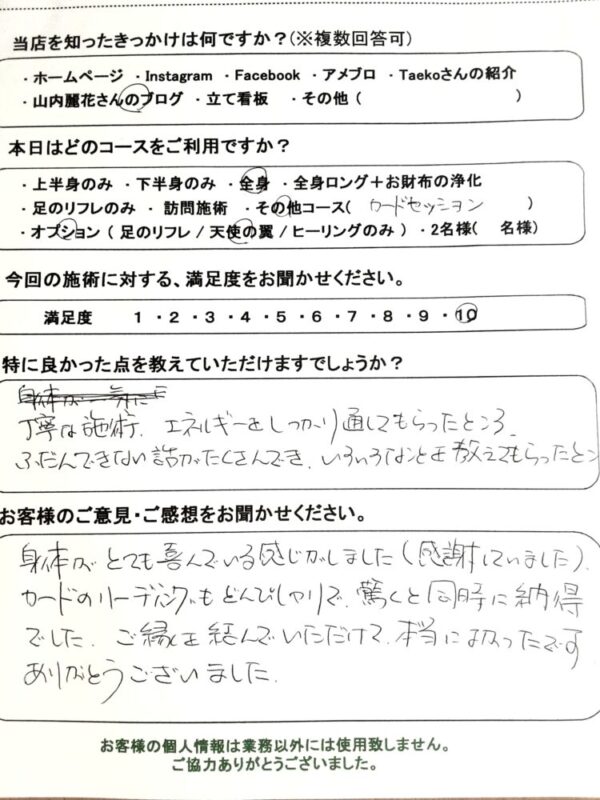 当店を知ったきっかけは何ですか？(※複数回答可)
・ホームページ ・Instagram ・Facebook ・アメブロ ・Taekoさんの紹介
・山内麗花さんのブログ ・立て看板 ・その他 ( )
本日はどのコースをご利用ですか？
・上半身のみ ・下半身のみ ・全身 ・全身ロング＋お財布の浄化
・足のリフレのみ ・訪問施術 ・その他コース( カードセッション )
・オプション ( 足のリフレ / 天使の翼 / ヒーリングのみ ) ・2名様( 名様)
今回の施術に対する、満足度をお聞かせください。
満足度 1 ・ 2 ・ 3 ・ 4 ・ 5 ・ 6 ・ 7 ・ 8 ・ 9 ・ 10
特に良かった点を教えていただけますでしょうか？
丁寧な施術、エネルギーをしっかり通してもらったところ、
ふだんできない話がたくさんでき、いろいろなことを教えてもらったとこ
お客様のご意見・ご感想をお聞かせください。
身体がとても喜んでいる感じがしました(感謝していました)。
カードのリーディングもどんぴしゃりで、驚くと同時に納得
でした。ご縁を結んでいただけて、本当によかったです
ありがとうございました。
お客様の個人情報は業務以外には使用致しません。
ご協力ありがとうございました。